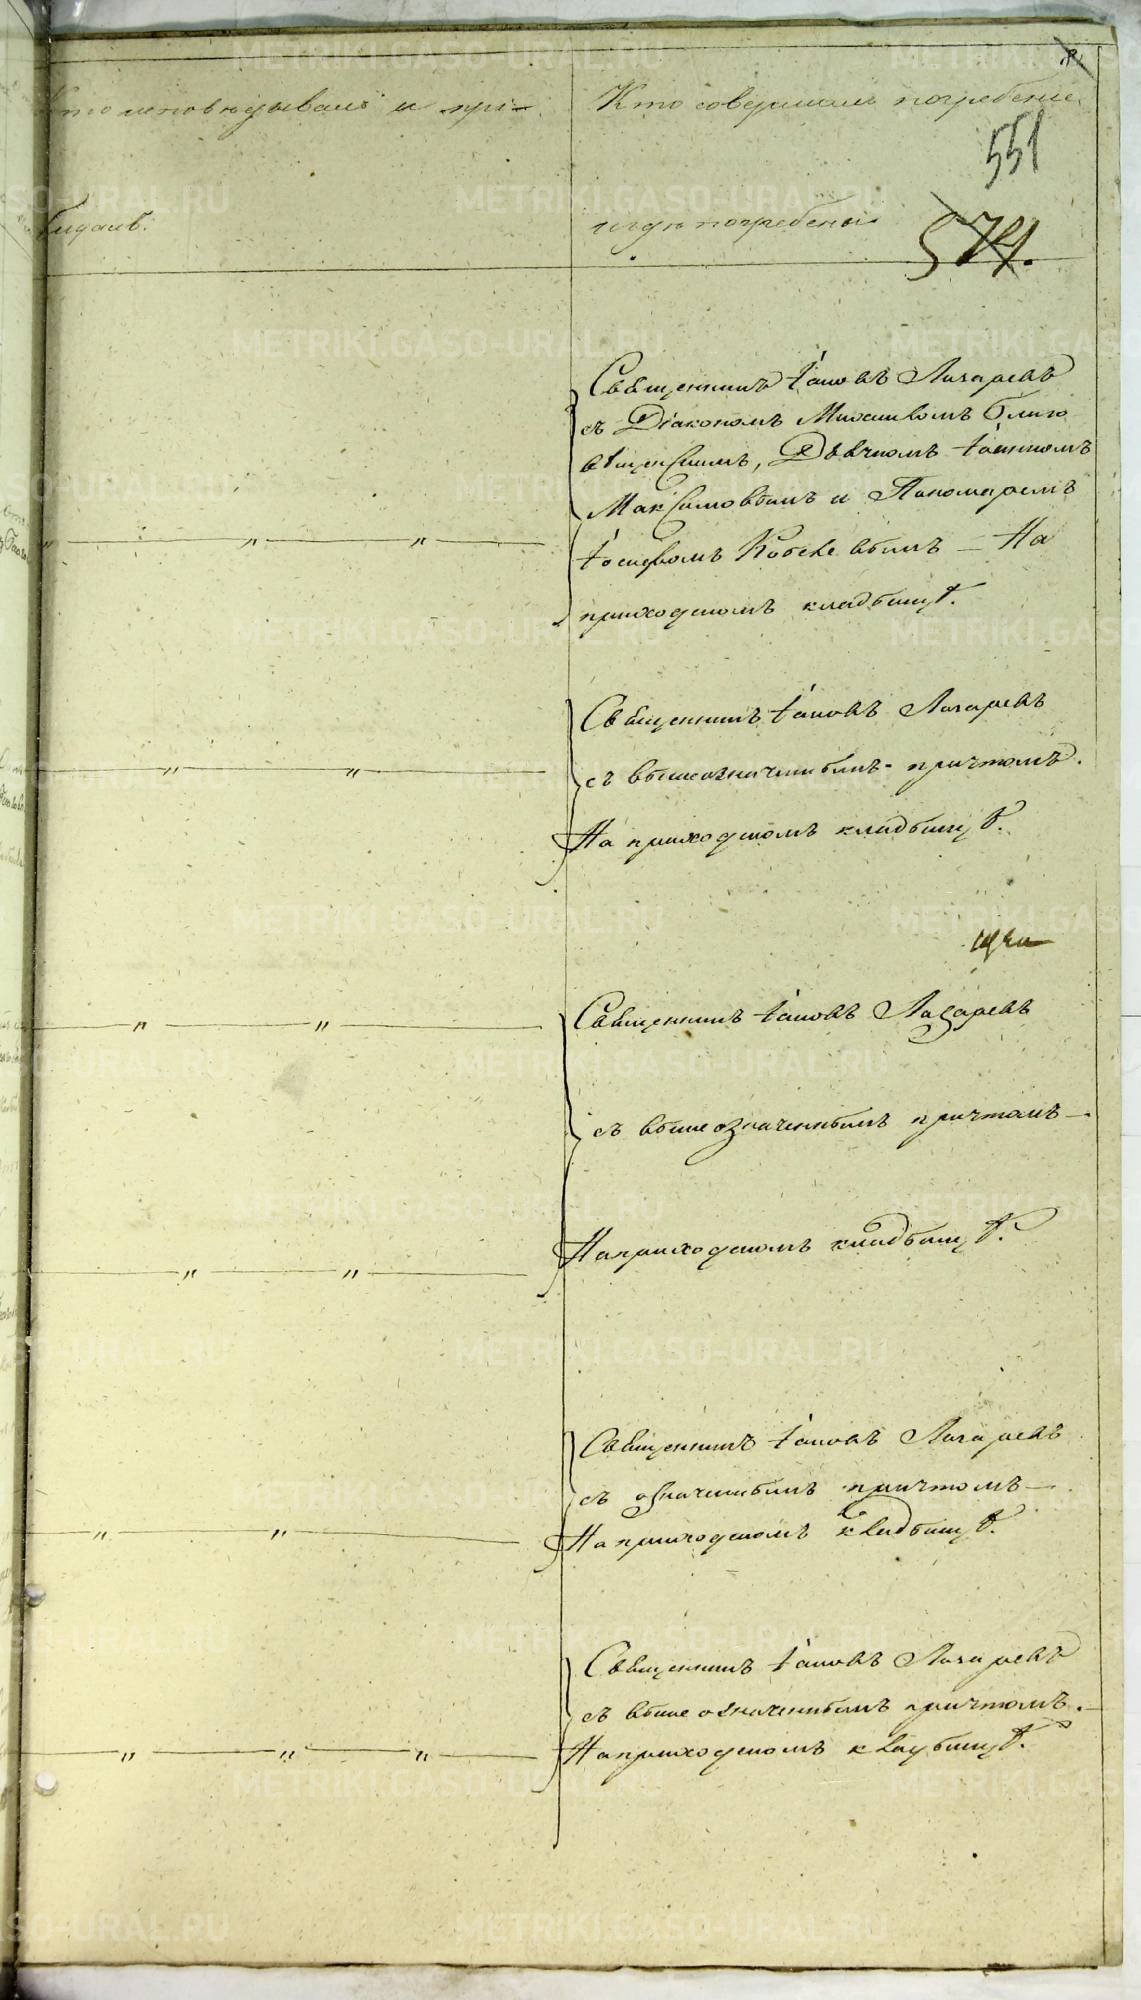 Кто исповѣдывалъ и прі-
Кто совершалъ погребеніе
551
бщалъ.
и гдѣ погребены
574.
Священникъ Іаковъ Лазаревъ
съ Діакономъ Михаиломъ Благо
вѣщенскимъ, Дьячкомъ Іоанномъ
Максимовымъ и Пономаремъ
Іосифомъ
вымъ — На
приходскомъ кладбищѣ.
Священникъ Іаковъ Лазаревъ
съ вышеозначеннымъ причтомъ.
На приходскомъ кладбищѣ.
Священникъ Іаковъ Лазаревъ
съ вышеозначеннымъ причтомъ —
На приходскомъ кладбищѣ.
Священникъ Іаковъ Лазаревъ
съ означеннымъ причтомъ —
На приходскомъ кладбищѣ.
Священникъ Іаковъ Лазаревъ
съ вышеозначеннымъ причтомъ.
На приходскомъ кладбищѣ.
METRIKI.GASO-URAL.RU